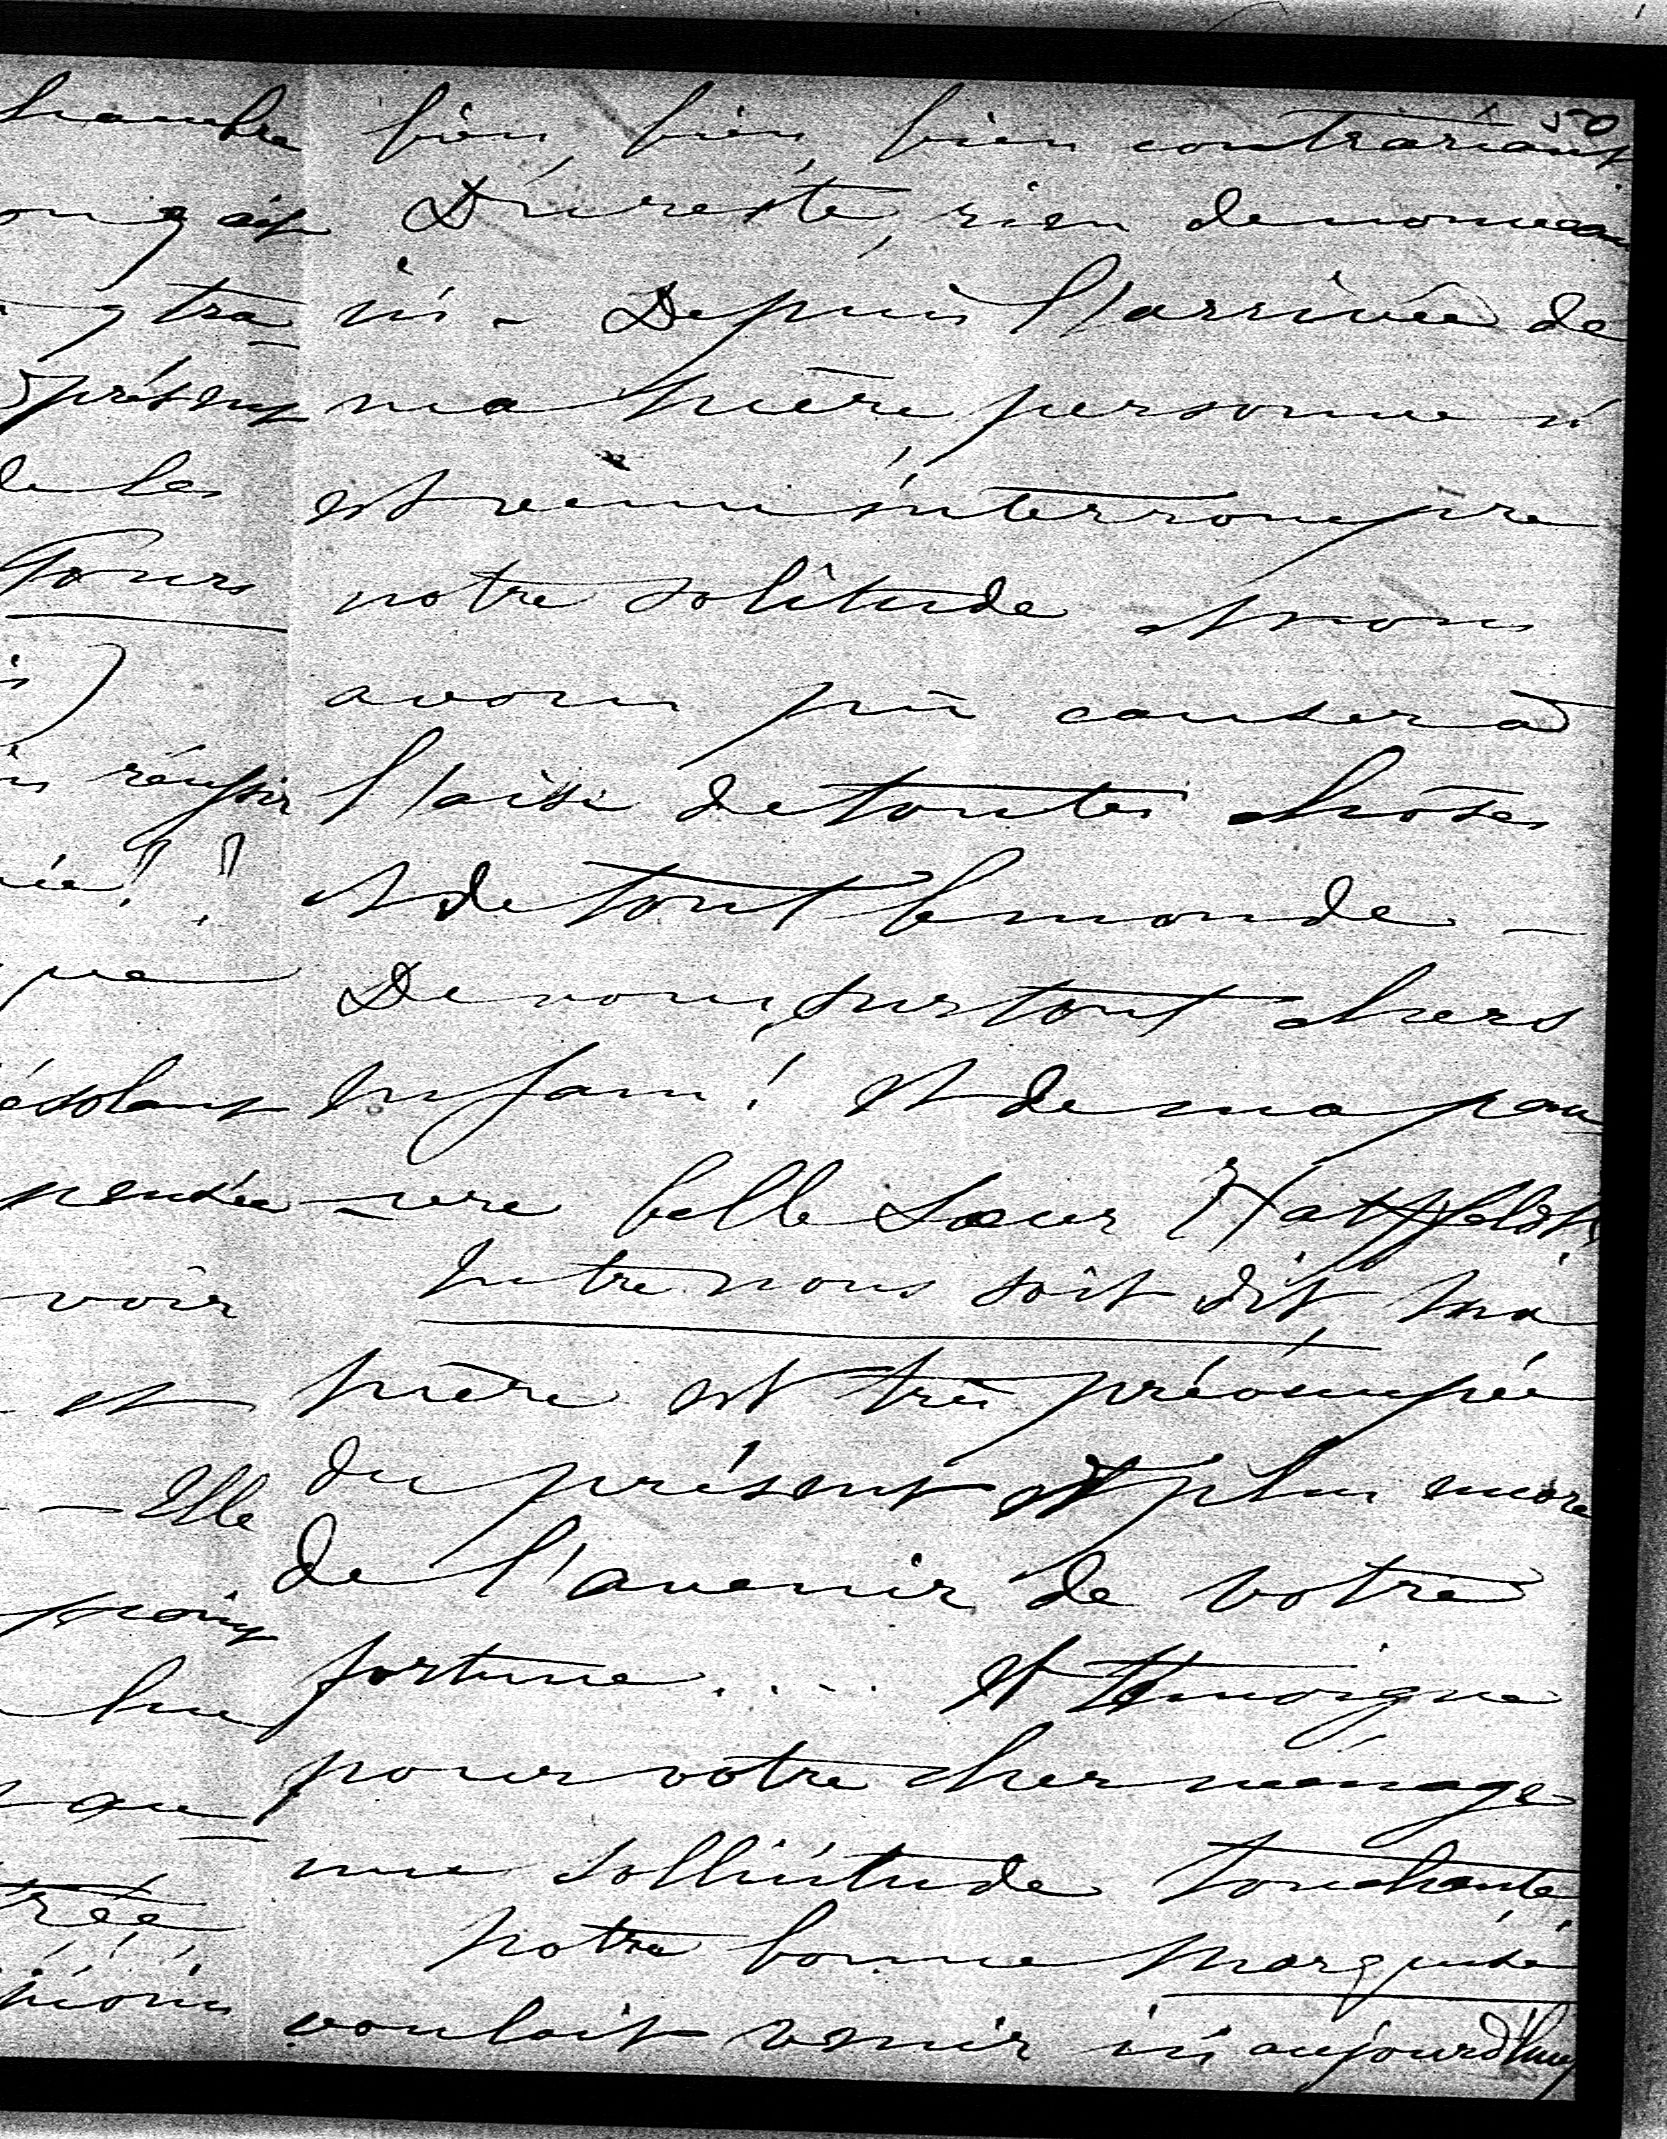 50
bien, bien, bien contrariant.
Du reste, rien de nouveau
ici - Depuis l'arrivée de
ma Mère, personne n'
est venu interrompre
notre solitude et nous
avons pû causer à
l'aise de toutes choses
et de tout le monde -
De vous, surtout chers
Enfans! et de ma pau
-vre belle Soeur Hatzfeldt,
Entre nous soit dit, Ma
Mère est très préoccupée
du présent et plus encore
de l'avenir de votre
fortune..... Et témoigne
pour votre cher ménage
une sollicitude touchante.
Notre bonne Marquise
voulait venir ici aujourd'huy
chambre
tra
présent
de les
Tours
réussir
ésolant
pensée
voir
et
- Elle
trée